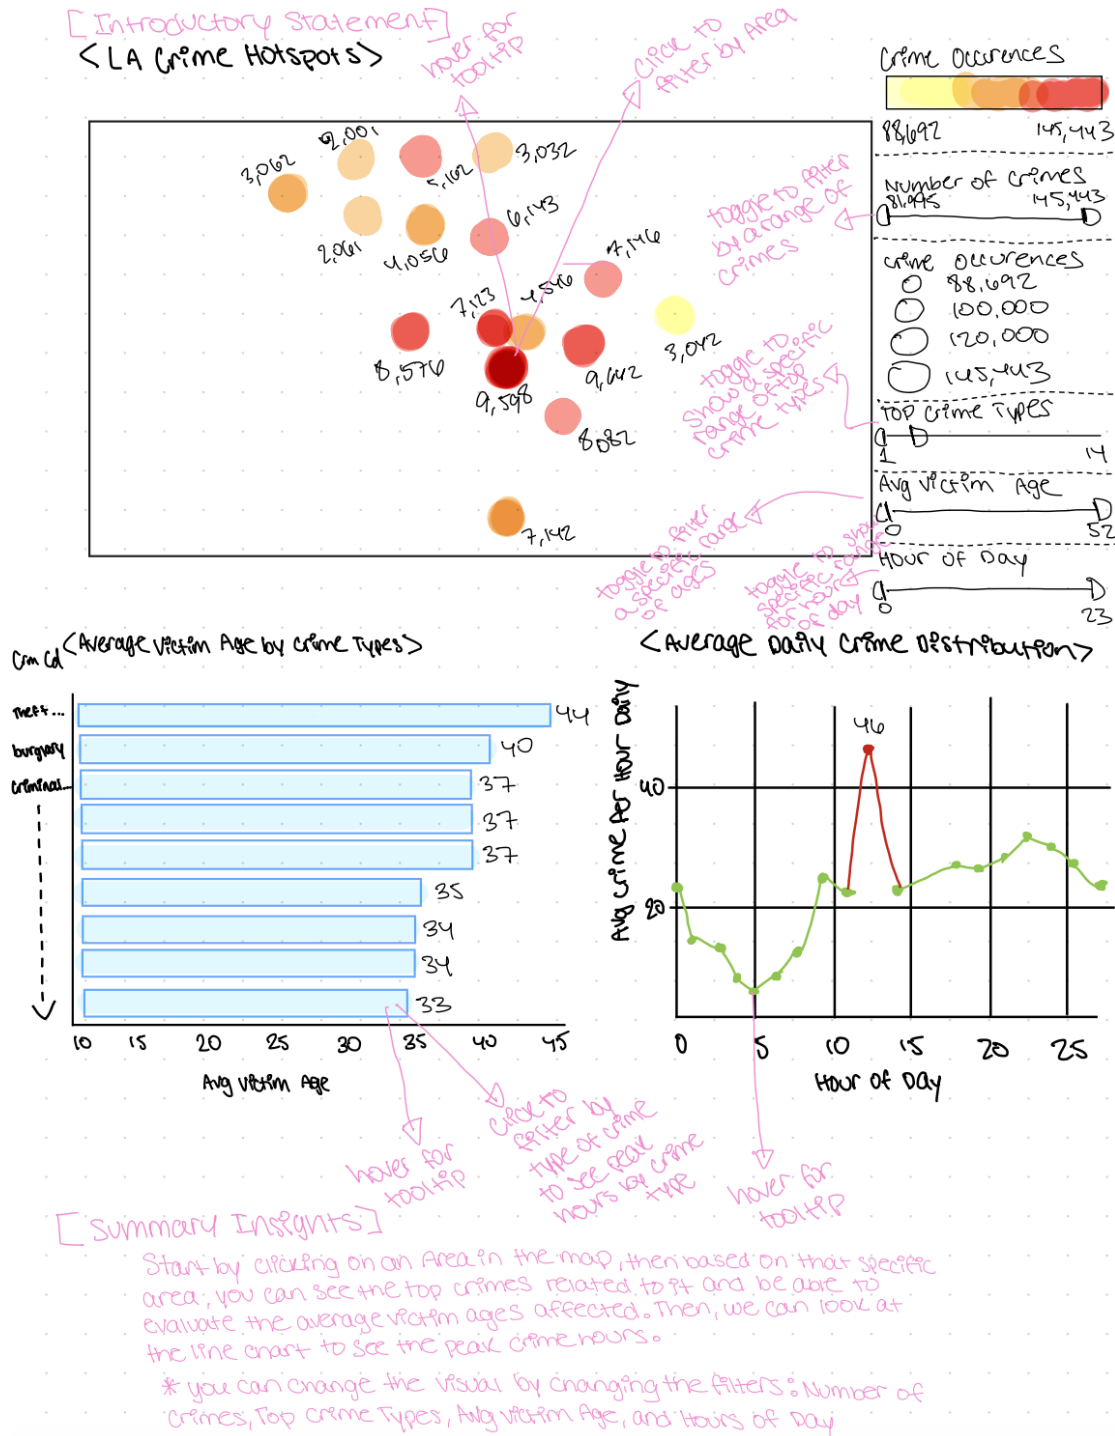 [Introductory Statement]
<LA Crime Hotspots>
hover for
tooltip
Click to
filter by Area
3,062
2,001
5,162
3,032
2,061
4,056
6,143
7,146
7,123
4,546
8,576
9,598
9,642
3,042
8,082
7,142
Crime Occurences
88,692
145,443
Number of crimes
81,995
145,443
toggle to filter
by a range of
crimes
crime occurences
88,692
100,000
120,000
145,443
toggle to
show a specific
range of top
crime types
Top Crime Types
1
14
Avg Victim Age
0
52
toggle to filter
a specific range
of ages
Hour of Day
0
23
toggle to show
specific range
for hour
of day
Crm Cd
<Average Victim Age by Crime Types>
Theft...
44
burglary
40
Criminal...
37
37
37
35
34
34
33
10 15 20 25 30 35 40 45
Avg Victim Age
hover for
tooltip
click to
filter by
type of crime
to see peak
hours by crime
type
<Average Daily Crime Distribution>
Avg Crime Per Hour Daily
46
40
20
0 5 10 15 20 25
Hour of Day
hover for
tooltip
[Summary Insights]
Start by clicking on an Area in the map, then based on that specific
area, you can see the top crimes related to it and be able to
evaluate the average victim ages affected. Then, we can look at
the line chart to see the peak crime hours.
* you can change the visual by changing the filters: Number of
Crimes, Top Crime Types, Avg Victim Age, and Hours of Day